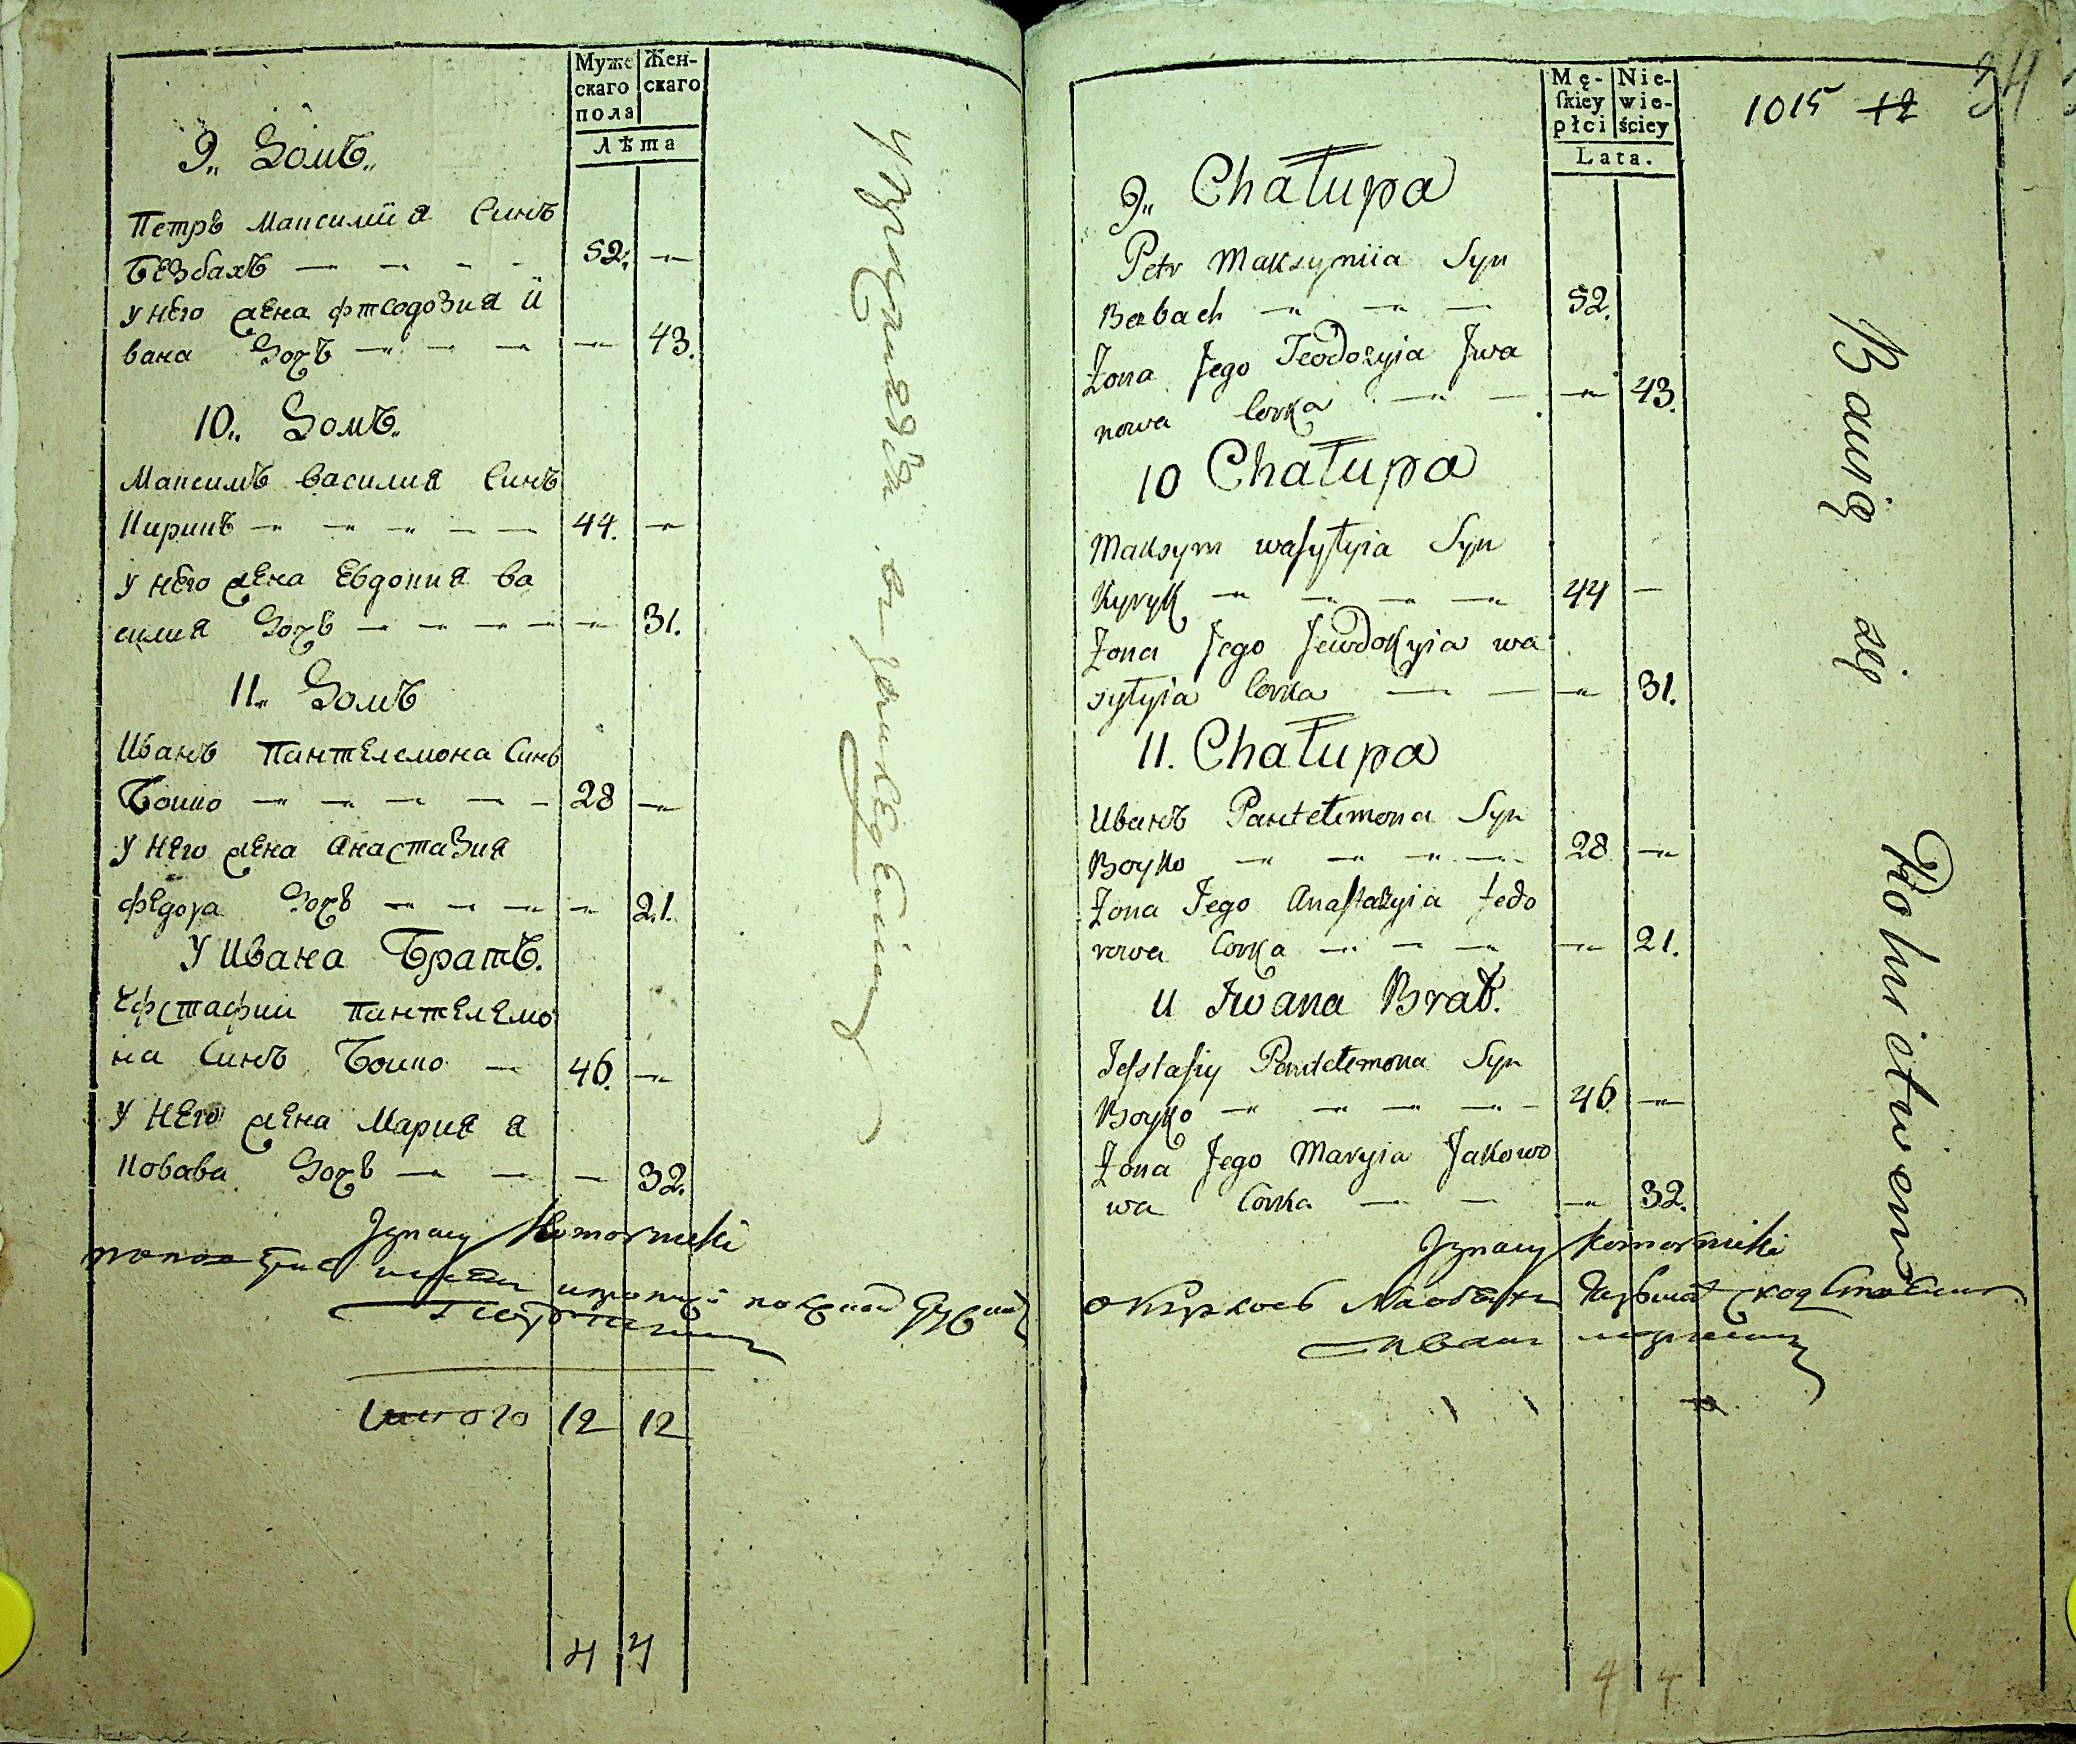 Муже
скаго
пола
Жен-
скаго
Лѣта
9„ Домъ„
Петръ Максимиіа Синъ
Безбахъ — — — — 52. —
у него жена Фтеодозиа И
вана Дочъ — — — — 43.
10„ Домъ„
Максимъ Василиа Синъ
Кирикъ — — — — — 44. —
у него жена Евдокиа Ва
силиа Дочъ — — — — — 31.
11„ Домъ
Иванъ Пантелемона Синъ
Бойко — — — — — 28 —
у него жена Анастазиа
Федора Дочъ — — — — 21.
У Ивана Братъ.
Ефстафии Пантелемо
на Синъ Бойко — 46. —
у него жена Мариа а
Ковава Дочъ — — — 32.
Jgnacy Komornicki
Итого 12 12
4 4
упражняются в земледелии
Mę-
ſkiey
płci
Nie-
wie-
ściey
Lata.
1015 12
34
9„ Chałupa
Petr Maksymiia Syn
Bezbach — — — 52.
Żona Jego Teodozyia Jwa
nowa Corka — — — 43.
10 Chałupa
Maksym wasyłyia Syn
Kyryk — — — — 44 —
Żona Jego Jewdokyia wa
syłyia Corka — — — 31.
11. Chałupa
Иванъ Pantełemona Syn
Boyko — — — — 28 —
Żona Jego Anastazyia fedo
rowa Corka — — — — 21.
U Jwana Brat.
Jefstafiy Pantełemona Syn
Boyko — — — — — 46 —
Żona Jego Maryia Jakowo
wa Corka — — — 32.
Jgnacy Komornicki
4 4
Bawią się Rolnictwem